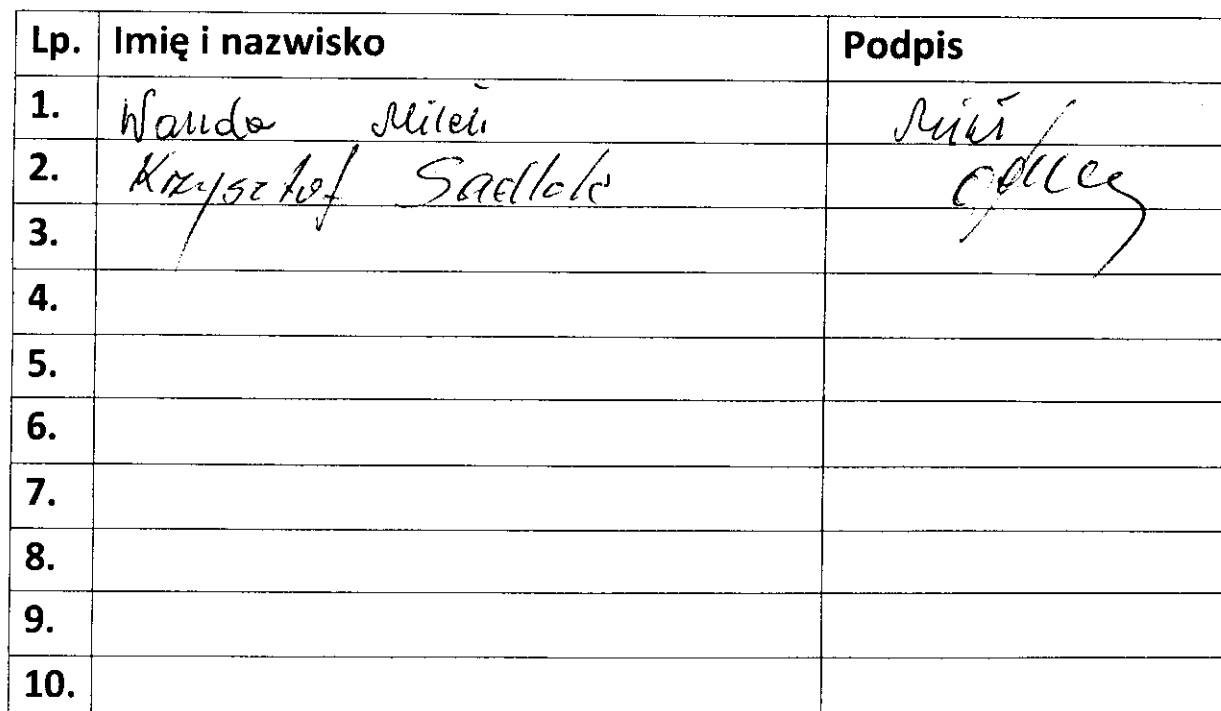 Lp. Imię i nazwisko Podpis
1. Wanda
2. Krzysztof
3.
4.
5.
6.
7.
8.
9.
10.